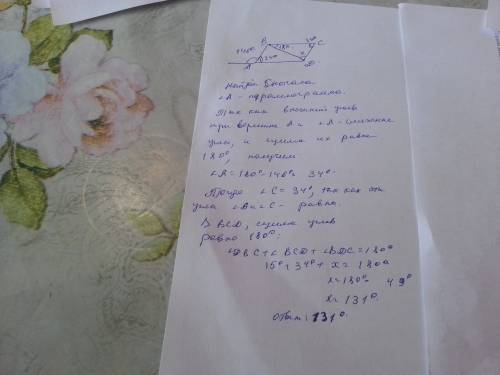 B
C
146°
34°
34°
x
A
D
∠A - параллелограмма.
Так как внешний угол
при вершине A и ∠A - смежные
углы, и сумма их равна
180°, получим
∠A = 180° - 146° = 34°.
Тогда ∠C = 34°, так как эти
углы ∠A и ∠C - равны.
В BCD, сумма углов
равна 180°.
∠DBC + ∠BCD + ∠BDC = 180°
15° + 34° + x = 180°
x = 180° - 49°
x = 131°
Ответ: 131°.